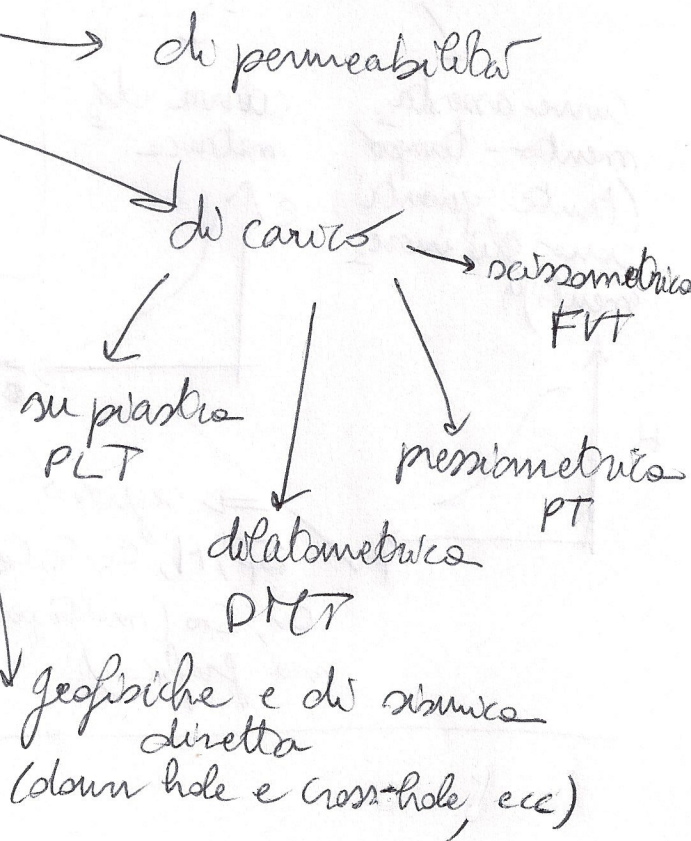 di permeabilità
di carico
scissometrica
FVT
su piastra
PLT
pressiometrica
PT
dilatometrica
DMT
geofisiche e di sismica
diretta
(down hole e cross-hole, ecc)